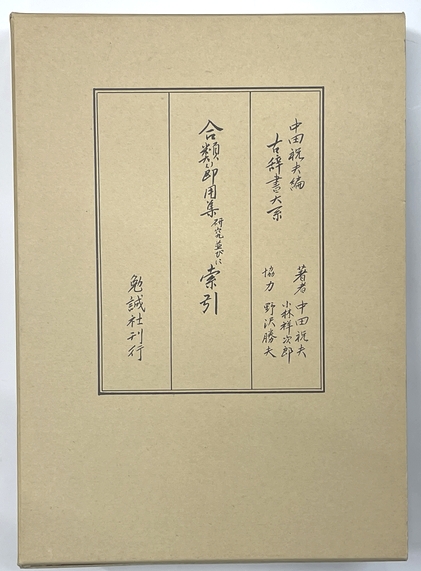 中田祝夫編
古辞書大系
著者 中田祝夫
小林祥次郎
協力 野沢勝夫
合類節用集研究並びに索引
勉誠社刊行